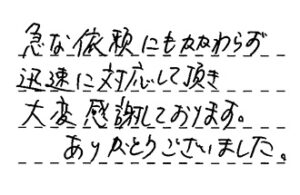 急な依頼にもかかわらず
迅速に対応して頂き
大変感謝しております。
ありがとうございました。